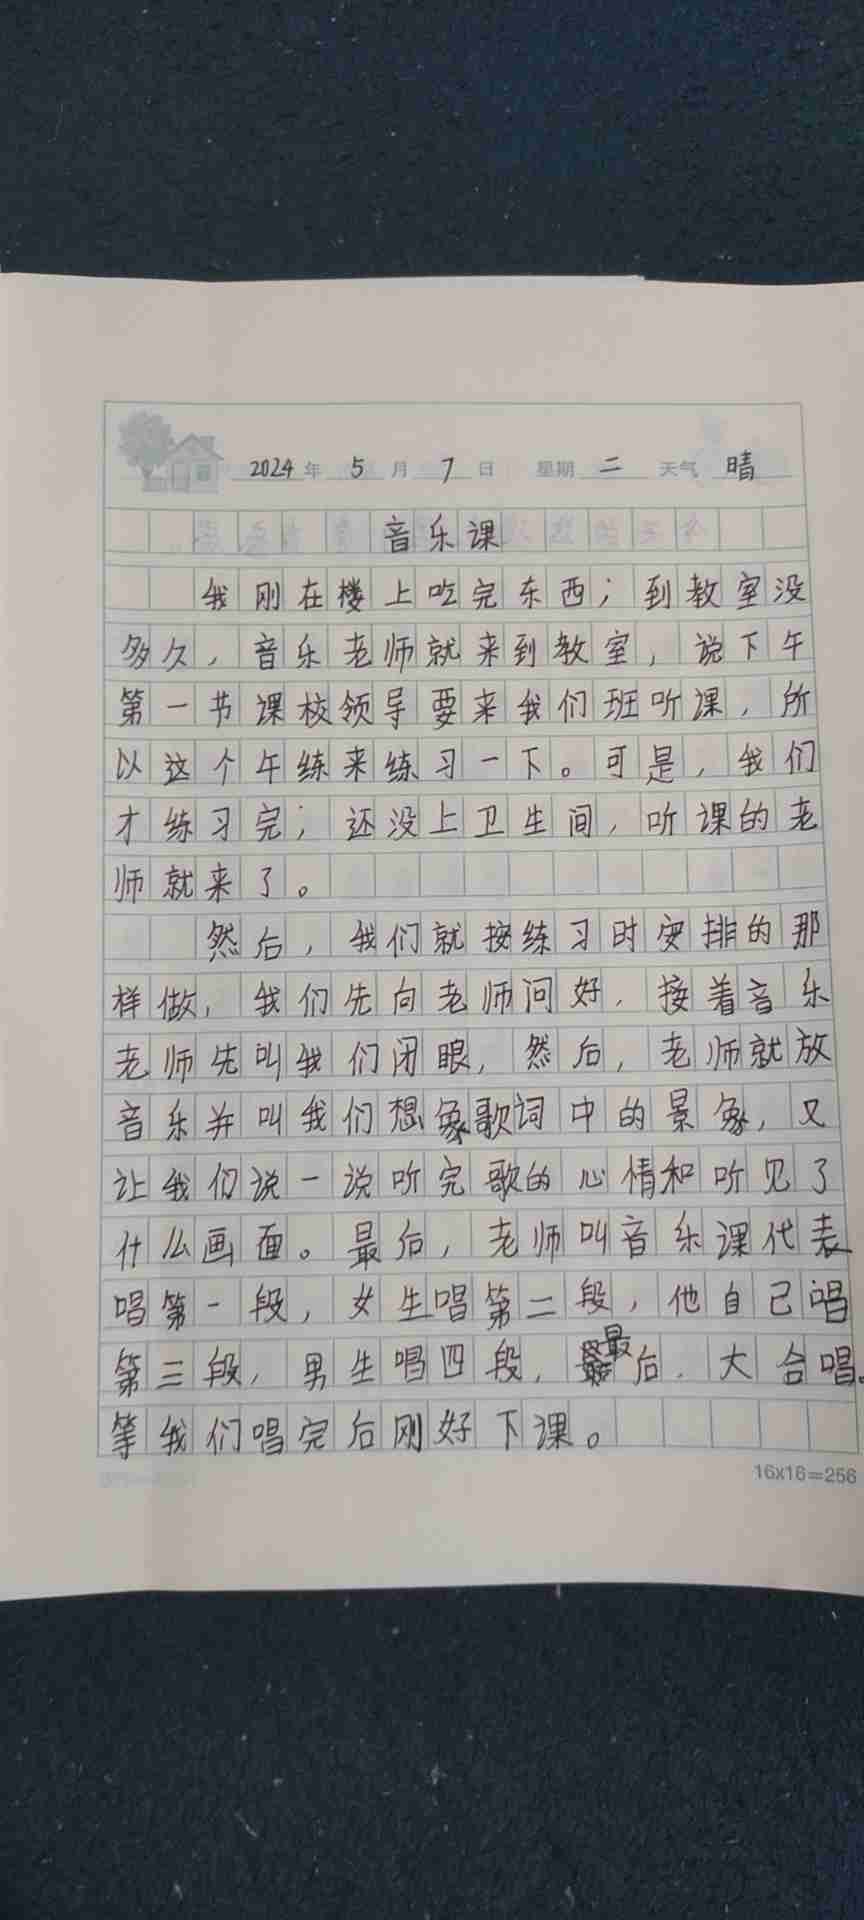 2024年 5月 7日 星期 二 天气 晴
音乐课
我刚在楼上吃完东西；到教室没
多久，音乐老师就来到教室，说下午
第一节课校领导要来我们班听课，所
以这个午练来练习一下。可是，我们
才练习完；还没上卫生间，听课的老
师就来了。
然后，我们就按练习时安排的那
样做，我们先向老师问好，接着音乐
老师先叫我们闭眼，然后，老师就放
音乐并叫我们想象歌词中的景象，又
让我们说一说听完歌的心情和听见了
什么画面。最后，老师叫音乐课代表
唱第一段，女生唱第二段，他自己唱
第三段，男生唱四段，最后，大合唱。
等我们唱完后刚好下课。
16x16=256